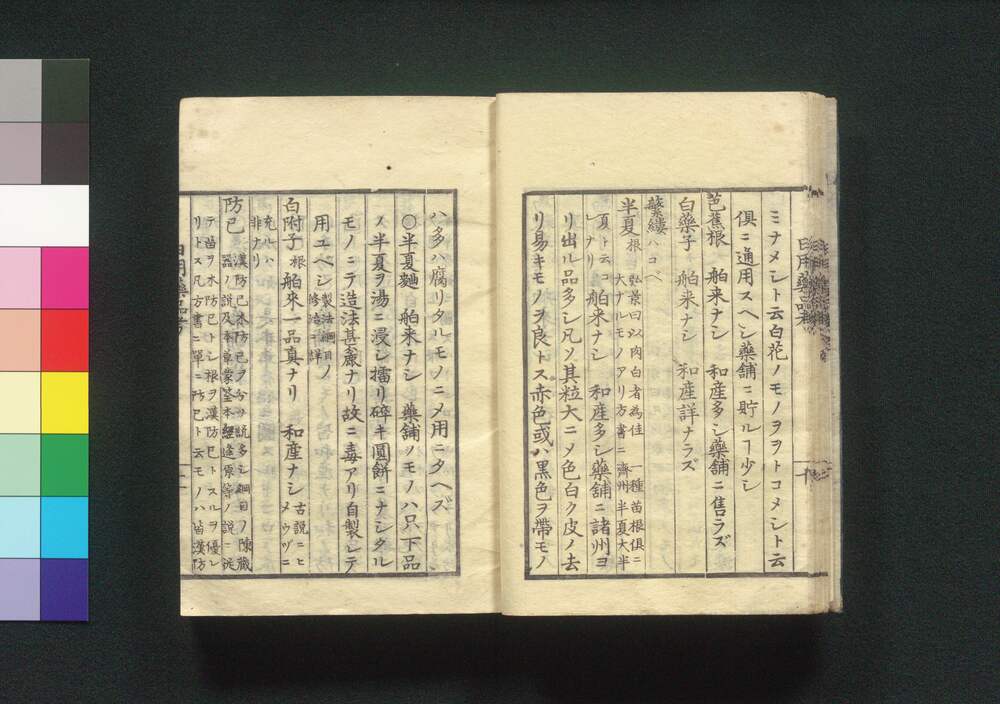 日用藥品考
ミナメシト云白花ノモノヲヲトコメシト云
倶ニ通用スヘシ藥舗ニ貯ルヿ少シ
芭蕉根 舶来ナシ 和産多シ藥舗ニ售ラズ
白藥子 舶来ナシ 和産詳ナラズ
蘩縷ハコベ
半夏根 弘景曰以肉白者為佳 一種苗根倶ニ
大ナルモノアリ方書ニ齊州半夏大半
夏ト云コレナリ 舶来ナシ 和産多シ藥舗ニ諸州ヨ
リ出ル品多シ凡ソ其粒大ニメ色白ク皮ノ去
リ易キモノヲ良トス赤色或ハ黒色ヲ帶モノ
ハ多ハ腐リタルモノニメ用ニタヘズ
○半夏麯 舶来ナシ 藥舗ノモノハ只下品
ノ半夏ヲ湯ニ浸シ擂リ碎キ圓餅ニナシタル
モノニテ造法甚麤ナリ故ニ毒アリ自製シテ
用ユベシ製法綱目ノ修治ニ詳
白附子根 舶来一品真ナリ 和産ナシ古説ニヒメウヅニ
充ルハ非ナリ
防已 漢防已木防已ヲ分ツ説多シ綱目ノ陳藏
器ノ説及本草蒙筌本經逢原等ノ説ニ從
テ苗ヲ木防已トシ根ヲ漢防已トスルヲ優レ
リトス凡方書ニ單ニ防已ト云モノハ皆漢防
日用藥品考